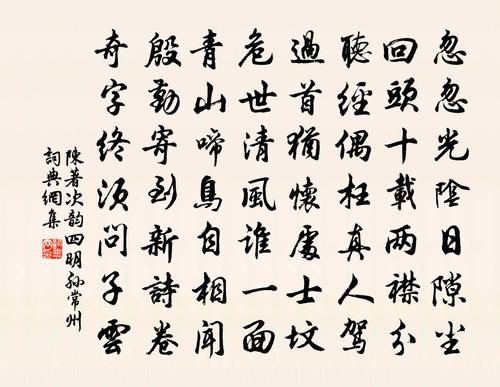 忽忽光陰日隙尘
回頭十載兩襟分
聽經偶枉真人駕
過首猶懷處士墳
危世清風誰一面
青山啼鳥自相聞
殷勤寄到新詩卷
奇字終須問子雲
陳著次韵四明孫常州
詞典網集